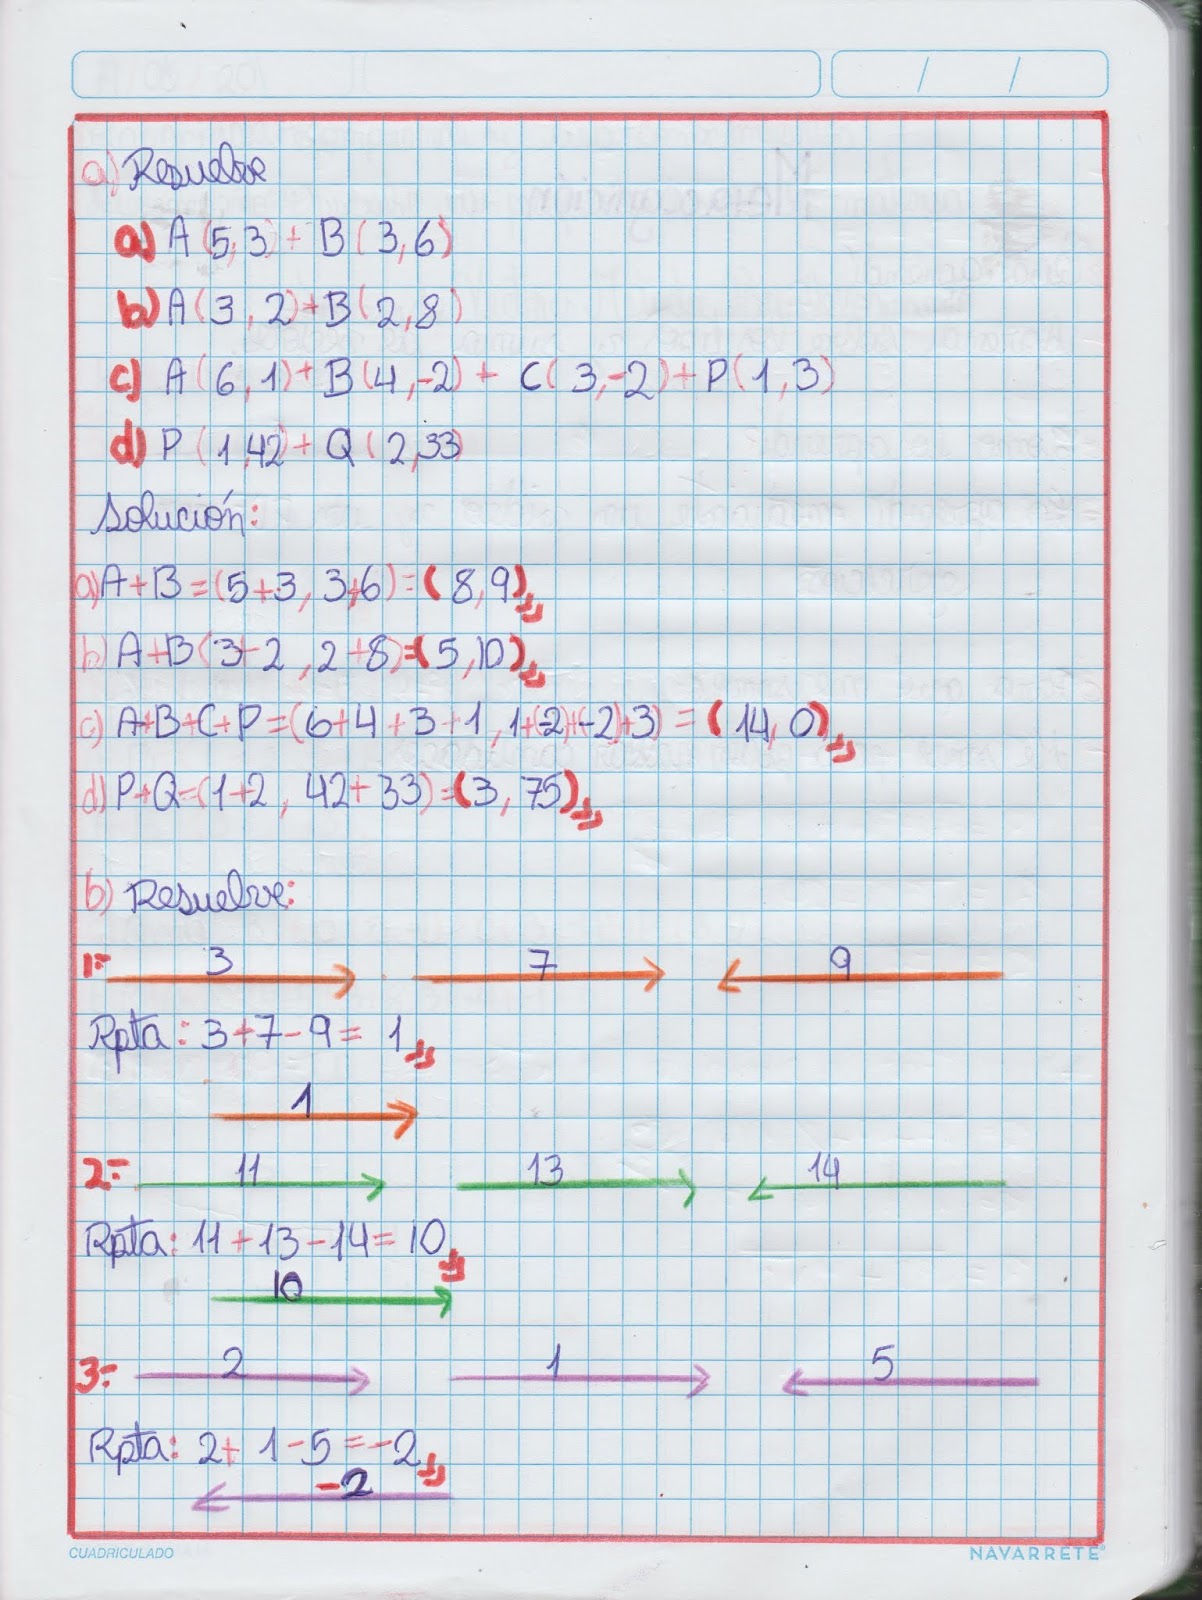 / /
a) Resuelve
a) A (5,3) + B (3,6)
b) A (3,2) + B (2,8)
c) A (6,1) + B (4,-2) + C (3,-2) + P (1,3)
d) P (1,42) + Q (2,33)
Solución:
a) A+B = (5+3, 3+6) = (8,9)
b) A+B (3+2, 2+8) = (5,10)
c) A+B+C+P = (6+4+3+1, 1+(-2)+(-2)+3) = (14,0)
d) P+Q = (1+2, 42+33) = (3,75)
b) Resuelve:
1=
3 7 9
Rpta: 3+7-9= 1
1
2=
11 13 14
Rpta: 11+13-14=10
10
3=
2 1 5
Rpta: 2+1-5=-2
-2
CUADRICULADO NAVARRETE